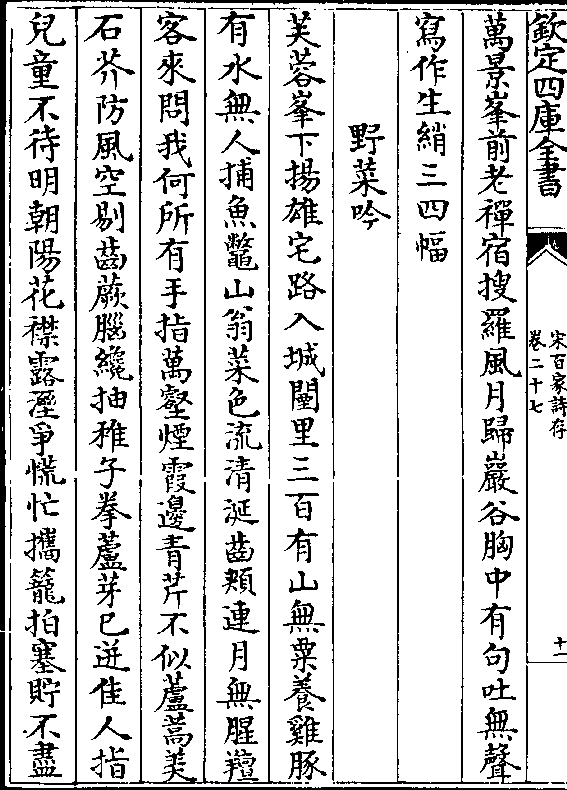 欽定四庫全書
宋百家詩存
卷二十七
十一
萬景峯前老禪宿搜羅風月歸巖谷胸中有句吐無聲
寫作生綃三四幅
野菜吟
芙蓉峯下揚雄宅路入城闉里三百有山無粟養雞豚
有水無人捕魚鼈山翁菜色流清涎齒頰連月無腥羶
客來問我何所有手指萬壑煙霞邊青芹不似蘆蒿美
石芥防風空剔齒蕨腦纔抽稚子拳蘆芽已迸佳人指
兒童不待明朝陽花襟露溼爭慌忙攜籠拍塞貯不盡